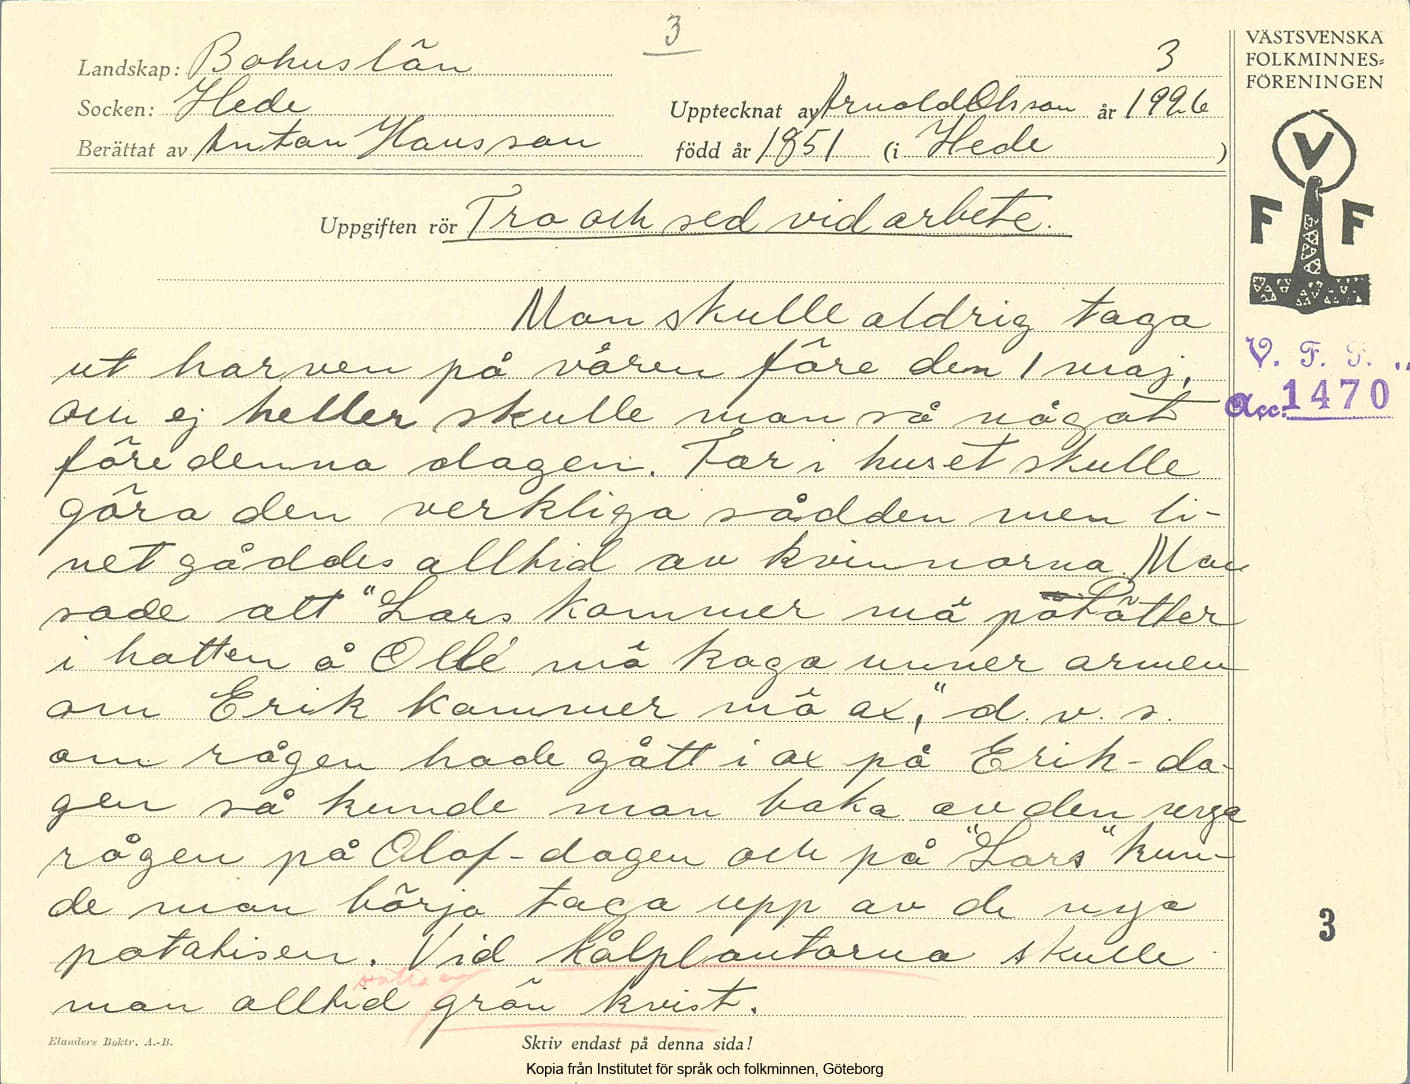 3
VÄSTSVENSKA
FOLKMINNES=
FÖRENINGEN
Landskap: Bohuslän 3
Socken: Hede Upptecknat av Arnold Olsson år 1926
Berättat av Antan Hansson född år 1851 (i Hede)
Uppgiften rör Tro och sed vid arbete.
V
F F
Man skulle aldrig taga
ut harven på våren före den 1 maj,
och ej heller skulle man så något
före denna dagen. Far i huset skulle
göra den verkliga sådden men li-
net såddes alltid av kvinnorna. Man
sade att "Lars kommer mä potätter
i hatten å Olle mä kaga unner armen
om Erik kommer mä ax," d. v. s.
om rågen hade gått i ax på Erik-da-
gen så kunde man baka av den nya
rågen på Olof-dagen och på "Lars" kun-
de man börja taga upp av de nya
potatisen. Vid kålplantorna skulle
man alltid sätta en grön kvist.
V. F. F.
Acc: 1470
3
Elanders Boktr. A.-B.
Skriv endast på denna sida!
Kopia från Institutet för språk och folkminnen, Göteborg